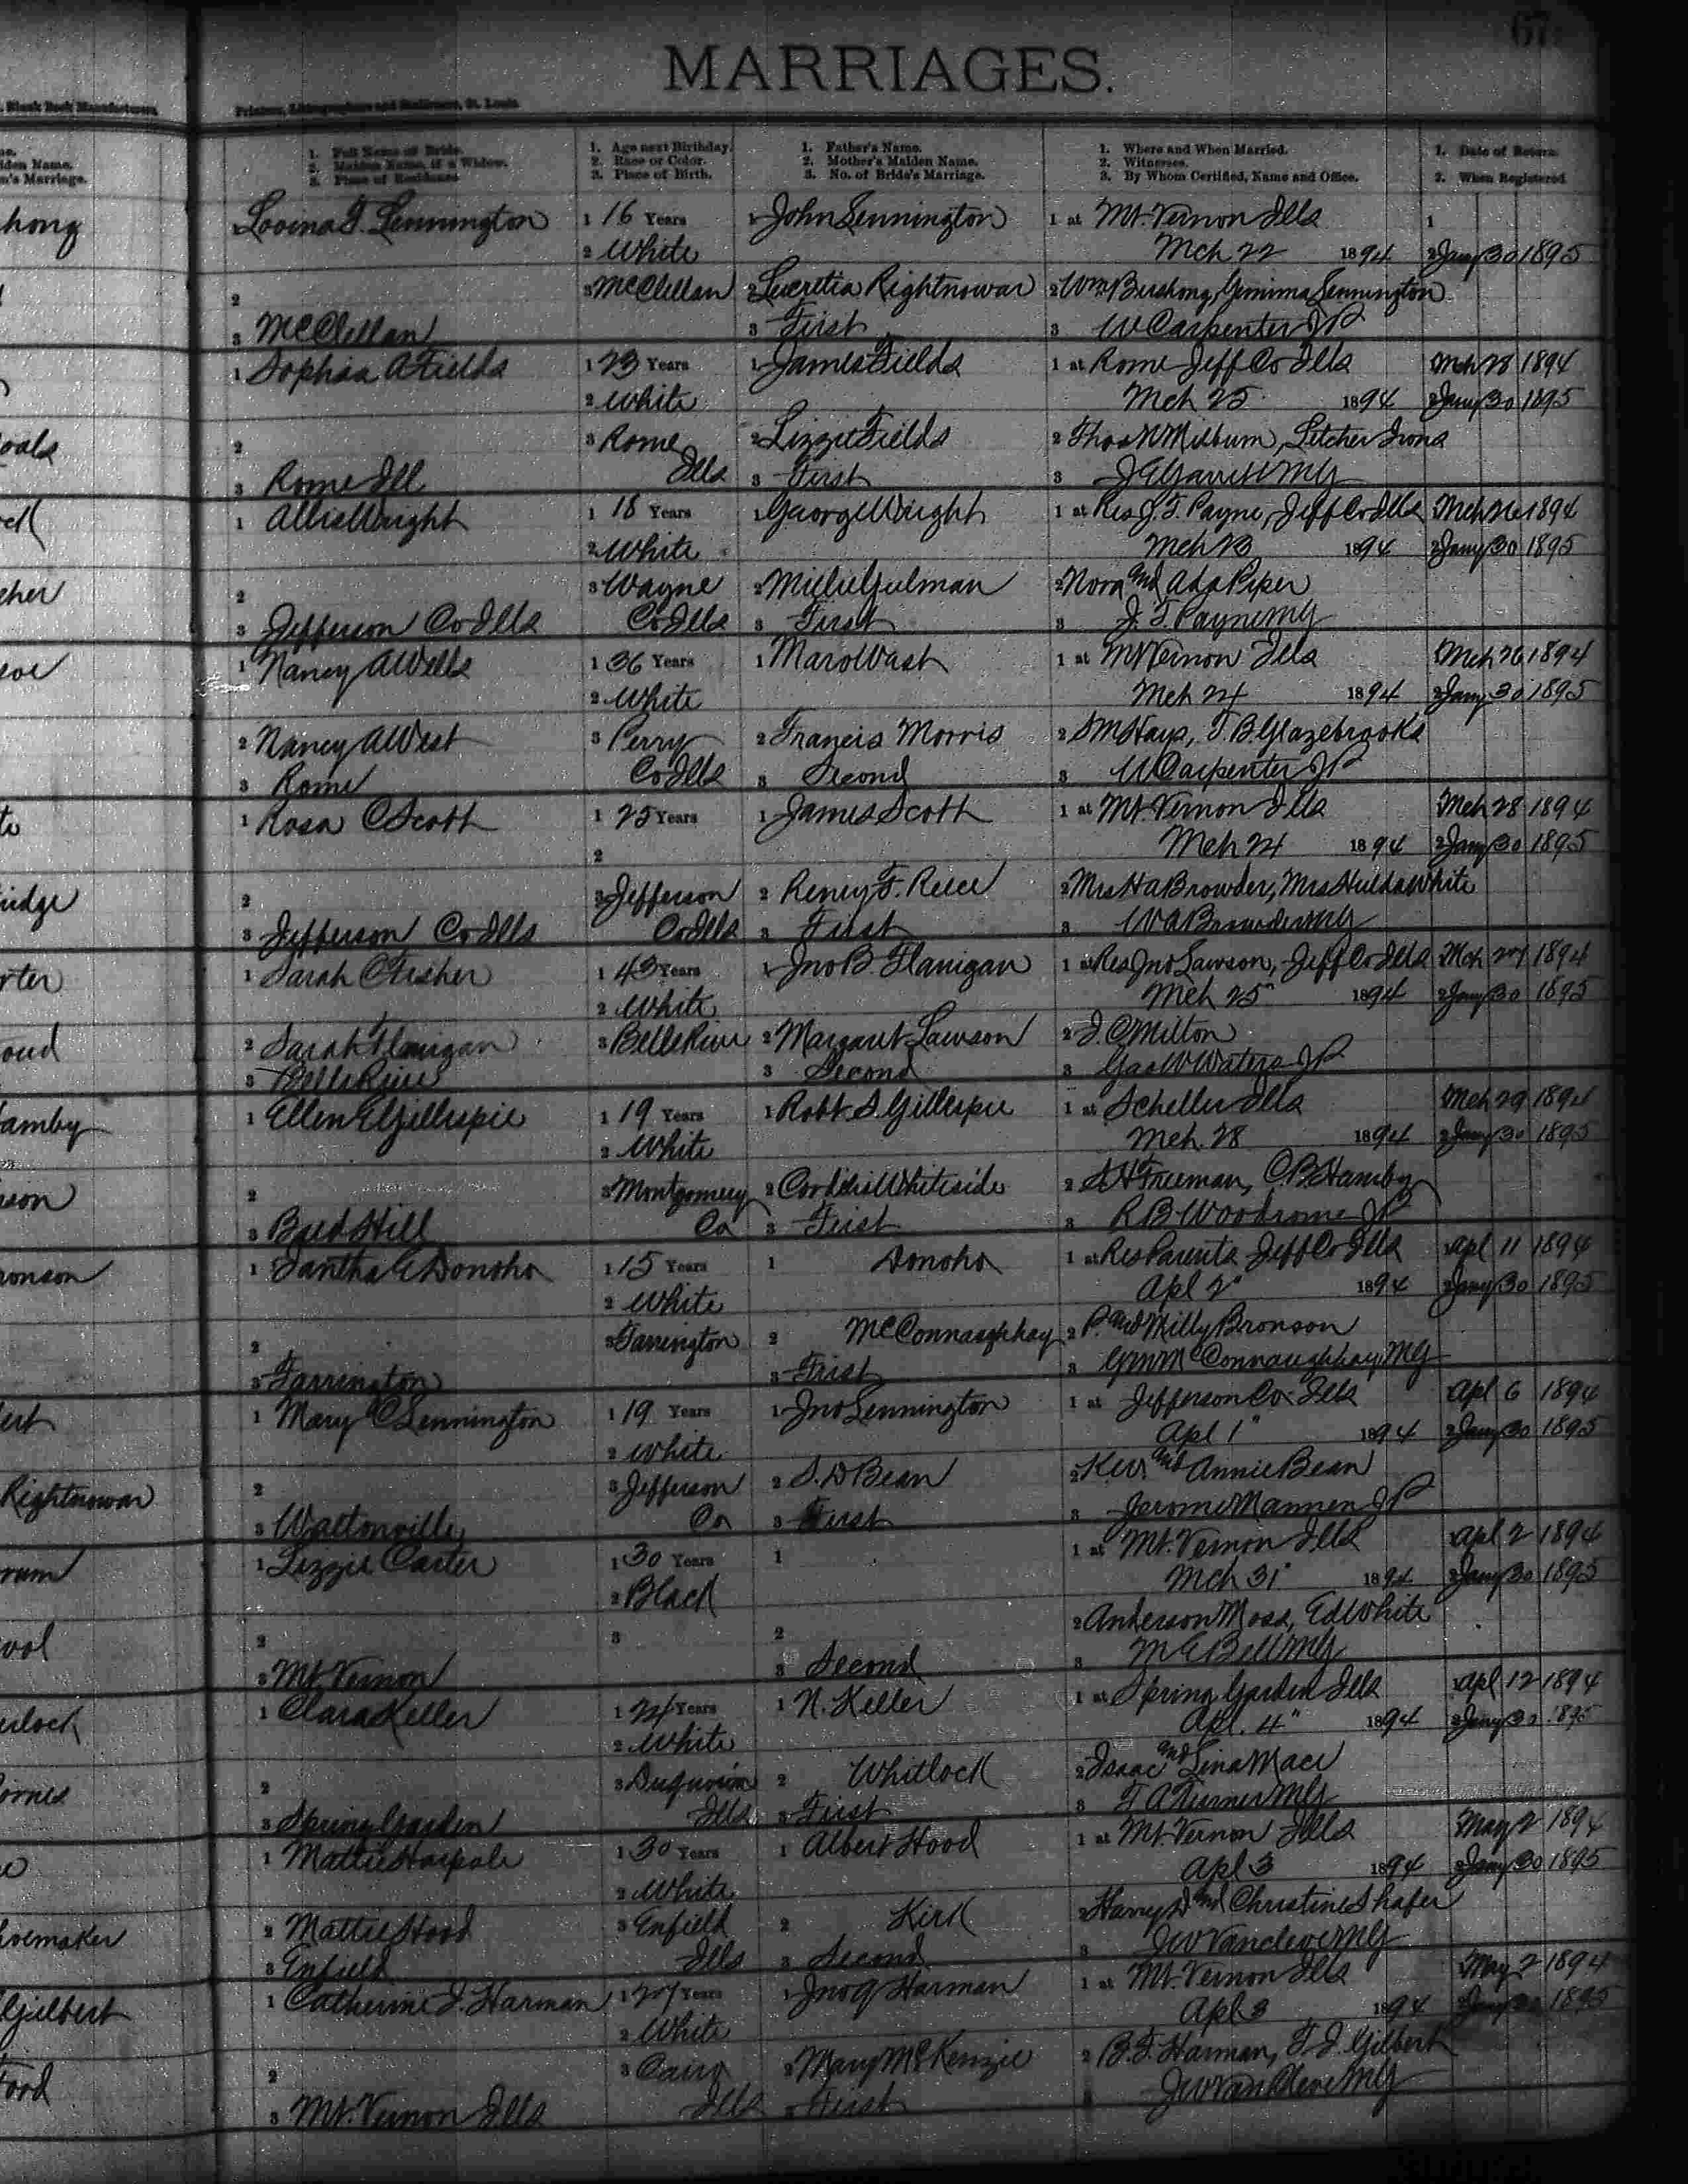 67
MARRIAGES.
Blank Book Manufacturers,
Printers, Lithographers and Stationers, St. Louis.
1. Full Name of Bride. 1. Age next Birthday. 1. Father's Name. 1. Where and When Married. 1. Date of Return.
iden Name. 2. Maiden Name, if a Widow. 2. Race or Color. 2. Mother's Maiden Name. 2. Witnesses. 2. When Registered
n's Marriage. 3. Place of Residence. 3. Place of Birth. 3. No. of Bride's Marriage. 3. By Whom Certified, Name and Office.
hong 1 Lovina F. Lennington 1 16 Years 1 John Lennington 1 at Mt. Vernon Ills 1
2 White Mch 22 1894 2 Jany 30 1895
2 3 McClellan 2 Lucretia Rightnowar 2 Wm Bushong, Gemima Lennington
3 McClellan 3 First 3 W Carpenter JP
1 Sophia A Fields 1 23 Years 1 James Fields 1 at Rome Jeff Co Ills Mch 28 1894
2 White Mch 25 1894 2 Jany 30 1895
oals 2 3 Rome 2 Lizzie Fields 2 Thos N Milburn, Letcher Irons
3 Rome Ill Ills 3 First 3 J G Garrett MG
1 Allie Wright 1 18 Years 1 George Wright 1 at Res J. F. Payne, Jeff Co Ills Mch 26 1894
2 White Mch 1894 2 Jany 30 1895
cher 2 3 Wayne 2 2 Nora and Ada Piper
3 Jefferson Co Ills Co Ills 3 First 3 J. F. Payne MG
1 Nancy A Wells 1 36 Years 1 1 at Mt Vernon Ills Mch 26 1894
2 White Mch 24 1894 2 Jany 30 1895
2 Nancy A West 3 Perry 2 Francis Morris 2 S M Hays, T. B. Glazebrooks
3 Rome Co Ills 3 Second 3 W Carpenter JP
1 Rosa C Scott 1 25 Years 1 James Scott 1 at Mt. Vernon Ills Mch 28 1894
2 Mch 24 1894 2 Jany 30 1895
ridge 2 3 Jefferson 2 Reney F. Reece 2 Mrs H A Browder, Mrs Hulda White
3 Jefferson Co Ills Co Ills 3 First 3 W A Browder MG
rter 1 Sarah C Fisher 1 43 Years 1 Jno B. Flanigan 1 at Res Jno Lawson, Jeff Co Ills Mch 27 1894
2 White Mch 25" 1894 2 Jany 30 1895
oud 2 Sarah Flanigan 3 Belle Rive 2 Margaret Lawson 2 J. C Milton
3 Belle Rive 3 Second 3 Geo W Waters JP
amby 1 Ellen E Gillespie 1 19 Years 1 Robt S. Gillespie 1 at Scheller Ills Mch 29 1894
2 White Mch. 28 1894 2 Jany 30 1895
son 2 3 Montgomery 2 Cordelia Whiteside 2 S H Freeman, C. B. Hamby
3 Bald Hill Co 3 First 3 R B Woodrome JP
ronson 1 Iantha E Donoho 1 15 Years 1 Donoho 1 at Res Parents Jeff Co Ills Apl 11 1894
2 White Apl 2" 1894 2 Jany 30 1895
2 3 Farrington 2 McConnaughhay 2 P. and Milly Bronson
3 Farrington 3 First 3 G M McConnaughhay, MG
ert 1 Mary C Lennington 1 19 Years 1 Jno Lennington 1 at Jefferson Co. Ills Apl 6 1894
2 White Apl 1" 1894 2 Jany 30 1895
Rightnowar 2 3 Jefferson 2 S. D Bean 2 and Annie Bean
3 Waltonville Co 3 First 3 Jerome Mannen JP
1 Lizzie Carter 1 30 Years 1 1 at Mt. Vernon Ills Apl 2 1894
2 Black Mch 31" 1894 2 Jany 30 1895
2 3 2 2 Anderson Moss, Ed White
3 Mt. Vernon 3 Second 3 M E Bell MG
1 Clara Keller 1 24 Years 1 N. Keller 1 at Spring Garden Ills Apl 12 1894
2 White Apl. 4" 1894 2 Jany 30 1895
2 3 Duquoin 2 Whitlock 2 Isaac and Lina Mace
3 Spring Garden Ills 3 First 3 F A Turner MG
1 Mattie Harpole 1 30 Years 1 Albert Hood 1 at Mt. Vernon Ills May 2 1894
2 White Apl 3 1894 2 Jany 30 1895
oemaker 2 Mattie Hood 3 Enfield 2 Kirk 2 Harry D and Christine Shafer
3 Enfield Ills 3 Second 3 J W Vancleve MG
Gilbert 1 Catherine J. Harman 1 27 Years 1 Jno Q Harman 1 at Mt. Vernon Ills May 2 1894
2 White Apl 3 1894 2 Jany 30 1895
Ford 2 3 Cairo 2 Mary McKenzie 2 B. F. Harman, F. J. Gilbert
3 Mt. Vernon Ills Ills 3 First 3 J W Van Cleve MG